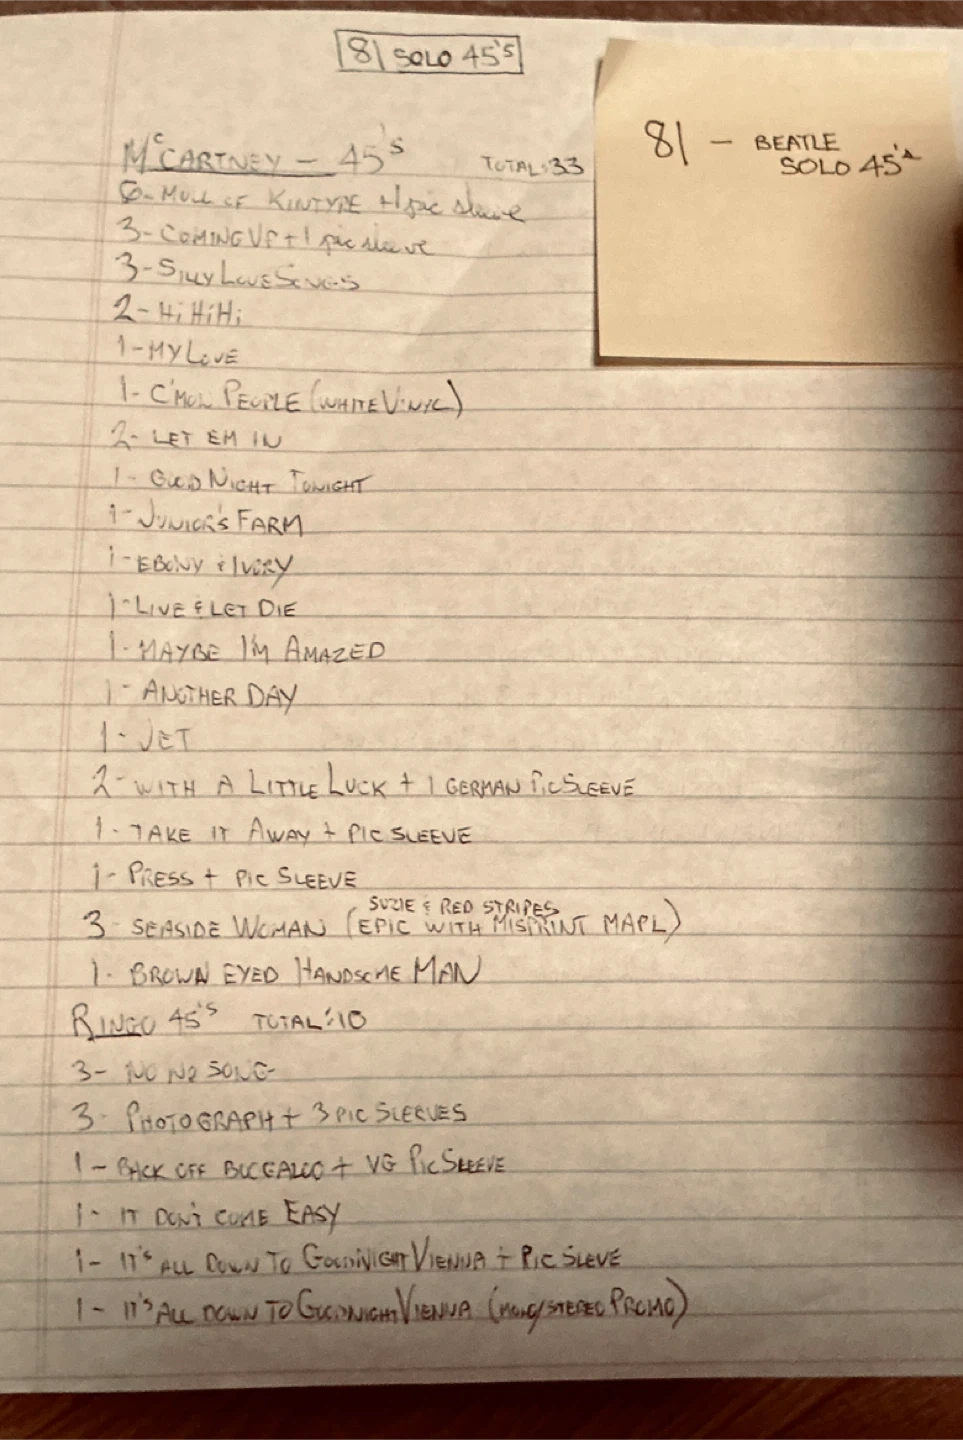 81 SOLO 45'S
81 - BEATLE
SOLO 45's
McCARTNEY - 45'S TOTAL: 33
6- MULL OF KINTYRE + 1 pic sleeve
3- COMING UP + 1 pic sleeve
3- SILLY LOVE SONGS
2- Hi Hi Hi
1- MY LOVE
1- C'MON PEOPLE (WHITE VINYL)
2- LET EM IN
1- GOOD NIGHT TONIGHT
1- JUNIOR'S FARM
1- EBONY & IVORY
1- LIVE & LET DIE
1- MAYBE I'M AMAZED
1- ANOTHER DAY
1- JET
2- WITH A LITTLE LUCK + 1 GERMAN PIC SLEEVE
1- TAKE IT AWAY + PIC SLEEVE
1- PRESS + PIC SLEEVE
SUZIE & RED STRIPES
3- SEASIDE WOMAN (EPIC WITH MISPRINT MAPL)
1- BROWN EYED HANDSOME MAN
RINGO 45'S TOTAL: 10
3- NO NO SONG
3- PHOTOGRAPH + 3 PIC SLEEVES
1- BACK OFF BOOGALOO + VG PIC SLEEVE
1- IT DON'T COME EASY
1- IT'S ALL DOWN TO GOODNIGHT VIENNA + PIC SLEVE
1- IT'S ALL DOWN TO GOODNIGHT VIENNA (MONO/STEREO PROMO)